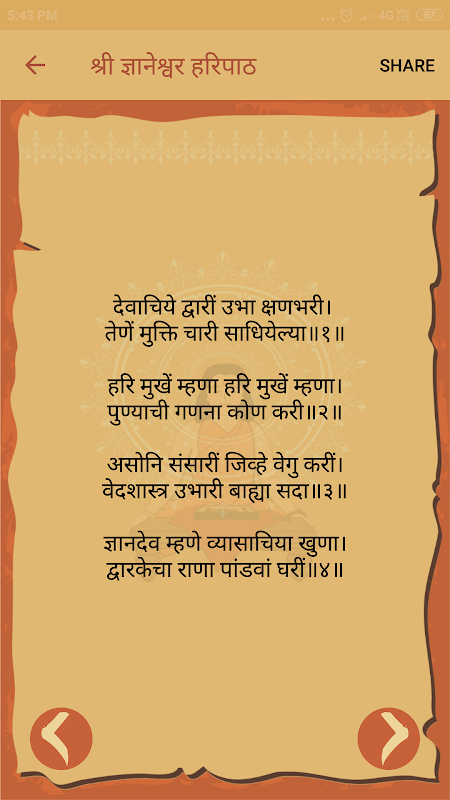 5:43 PM
4G
87
श्री ज्ञानेश्वर हरिपाठ
SHARE
देवाचिये द्वारीं उभा क्षणभरी।
तेणें मुक्ति चारी साधियेल्या॥१॥
हरि मुखें म्हणा हरि मुखें म्हणा।
पुण्याची गणना कोण करी॥२॥
असोनि संसारीं जिव्हे वेगु करीं।
वेदशास्त्र उभारी बाह्या सदा॥३॥
ज्ञानदेव म्हणे व्यासाचिया खुणा।
द्वारकेचा राणा पांडवां घरीं॥४॥